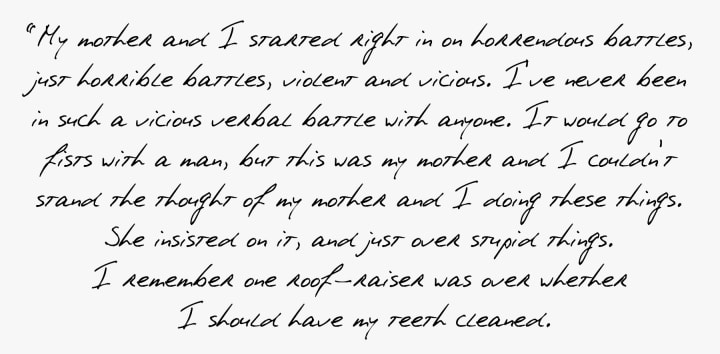 “My mother and I started right in on horrendous battles,
just horrible battles, violent and vicious. I've never been
in such a vicious verbal battle with anyone. It would go to
fists with a man, but this was my mother and I couldn't
stand the thought of my mother and I doing these things.
She insisted on it, and just over stupid things.
I remember one roof-raiser was over whether
I should have my teeth cleaned.